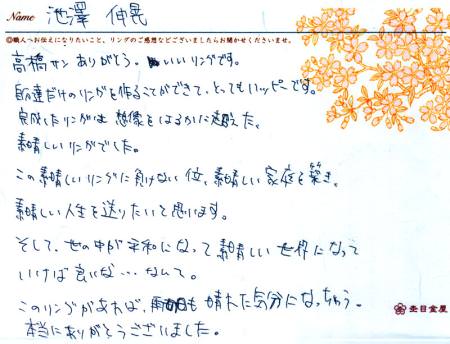 Name 池澤 伸晃
◎職人へお伝えになりたいこと、リングのご感想などございましたらお聞かせくださいませ。
高橋サン ありがとう。いいリングです。
自分達だけのリングを作ることができて、とってもハッピーです。
完成したリングは 想像をはるかに超えた、
素晴しいリングでした。
この素晴しいリングに負けない位、素晴しい 家庭を築き、
素晴しい人生を送りたいと思います。
そして、世の中が平和になって 素晴しい世界になって
いけば良いな…なんて。
このリングがあれば、雨の日も 晴れた気分になっちゃう。
本当にありがとうございました。
杢目金屋